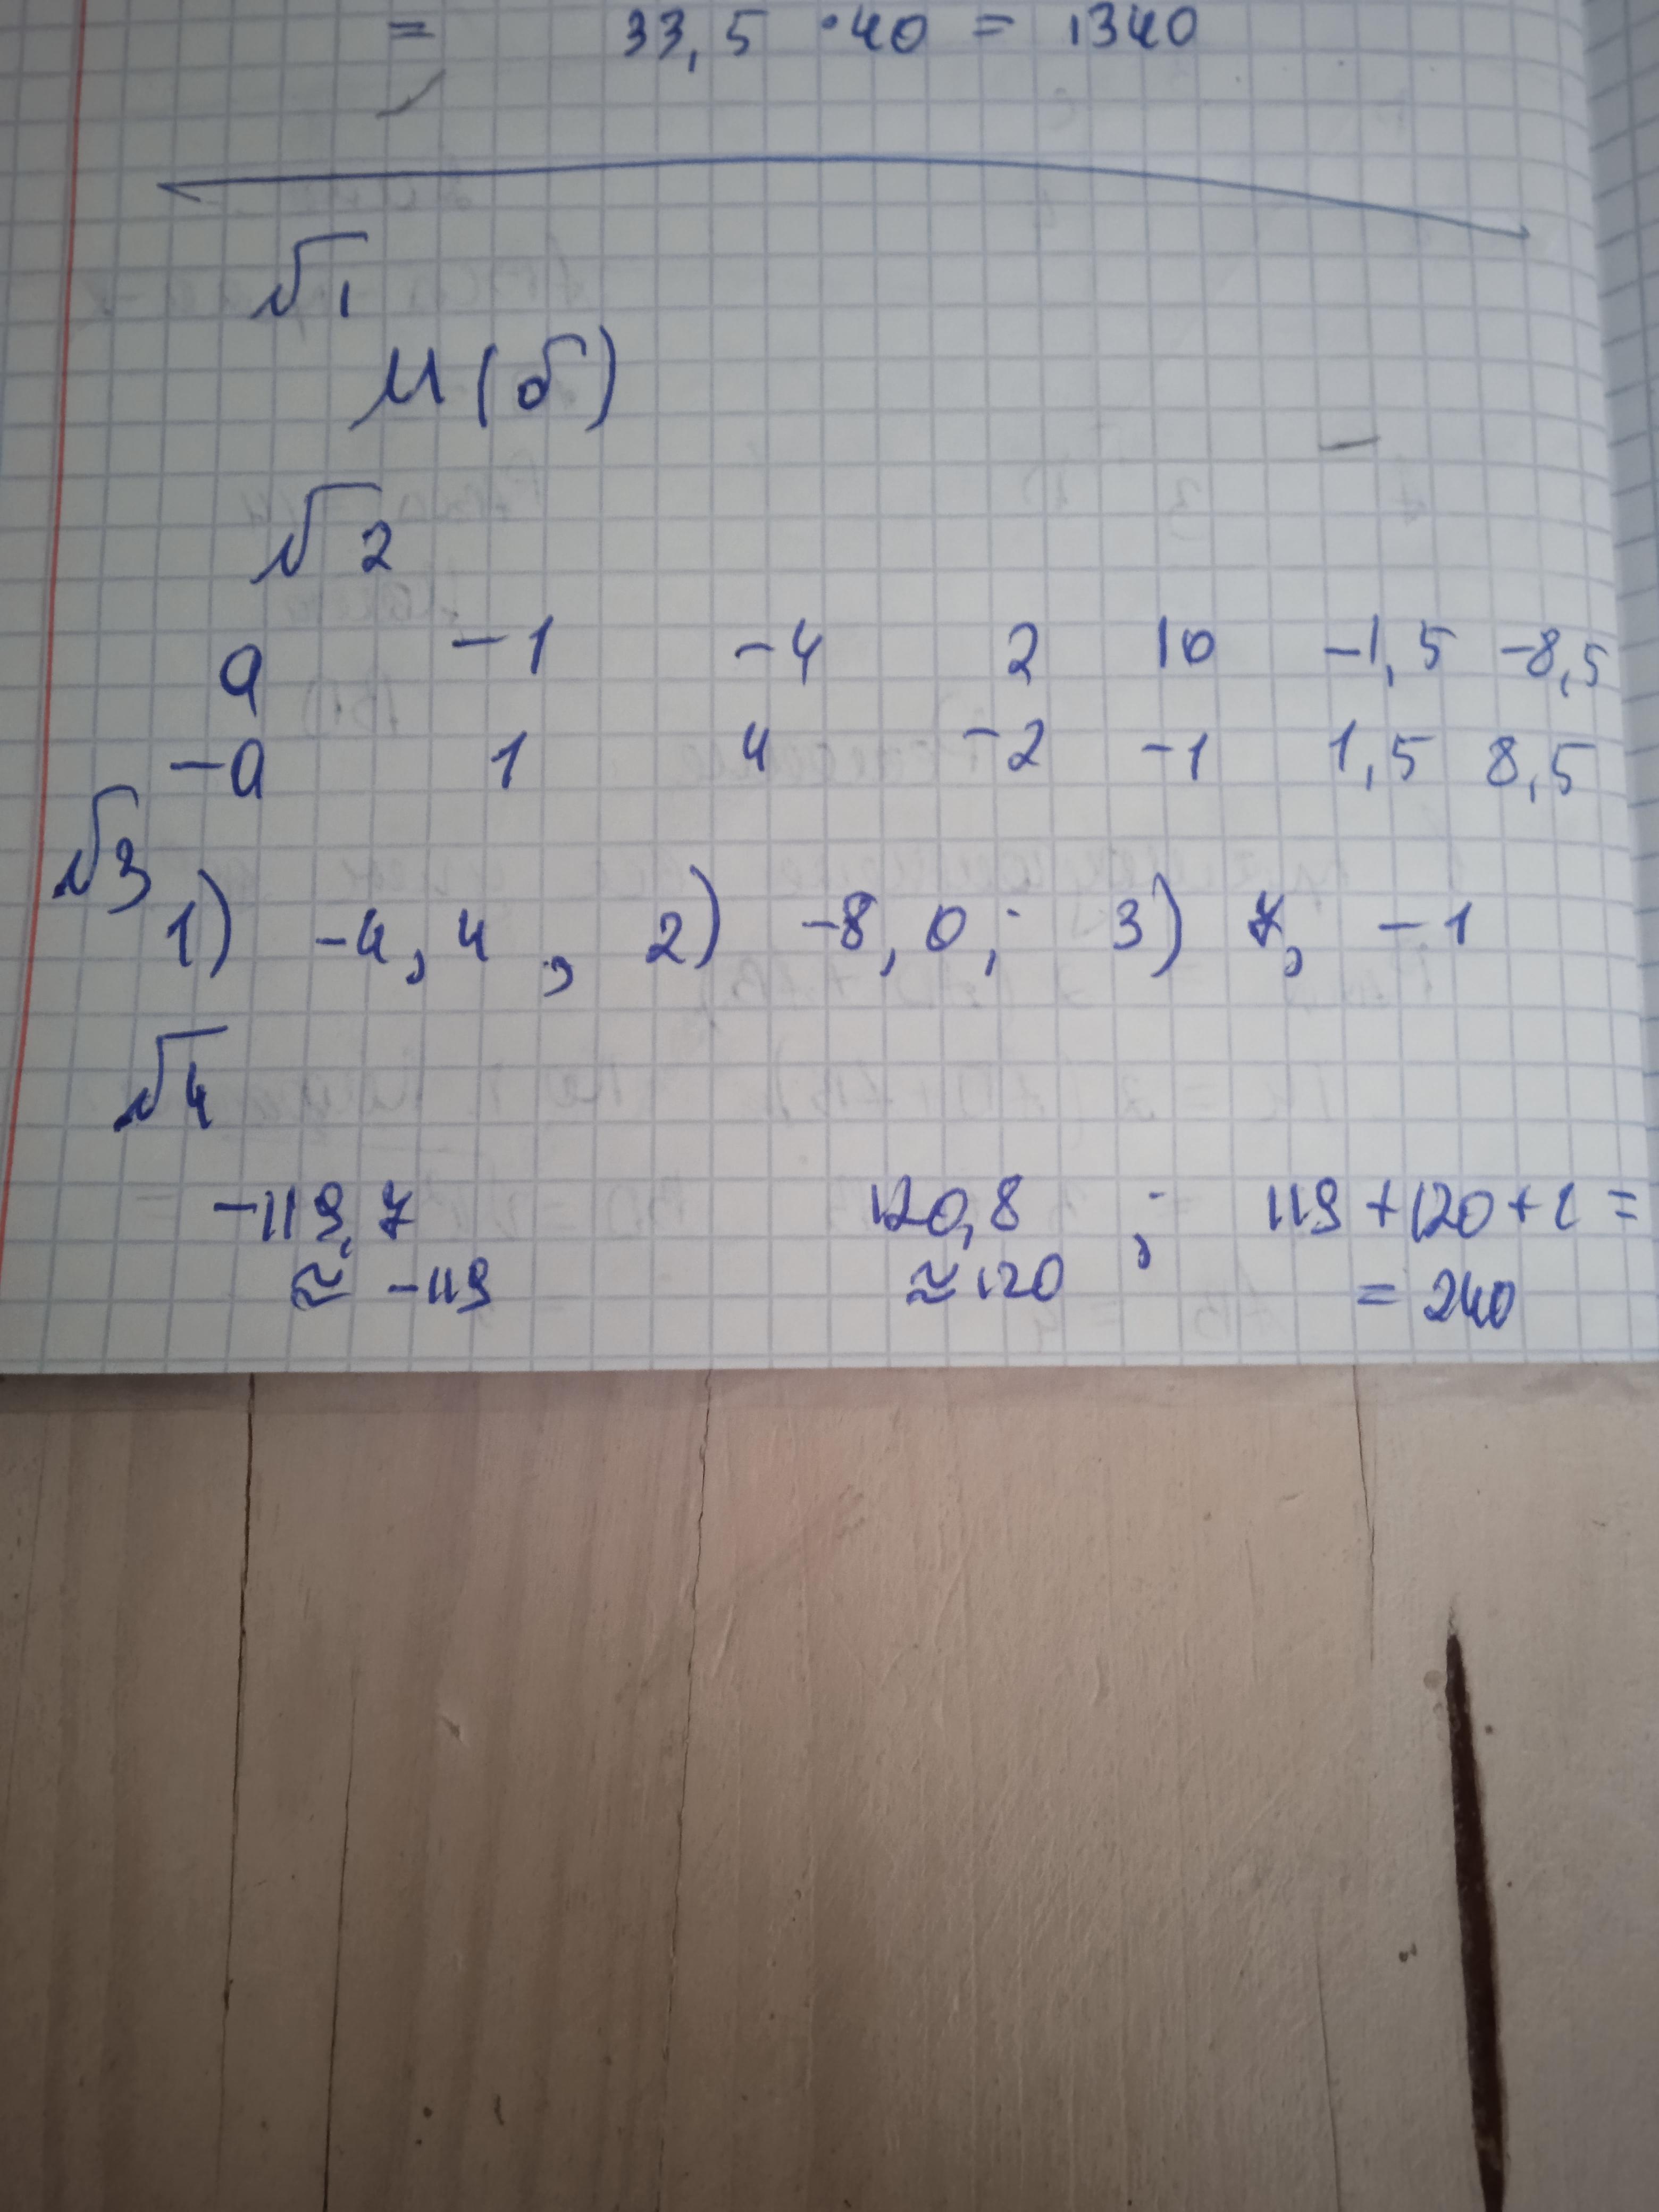 = 33,5 · 40 = 1340
√1
М(б)
√2
a -1 -4 2 10 -1,5 -8,5
-a 1 4 -2 -1 1,5 8,5
√3
1) -4, 4 , 2) -8, 0, 3) 7, -1
√4
-119,7 120,8 ; 119 + 120 + 1 =
≈ -119 ≈ 120 = 240